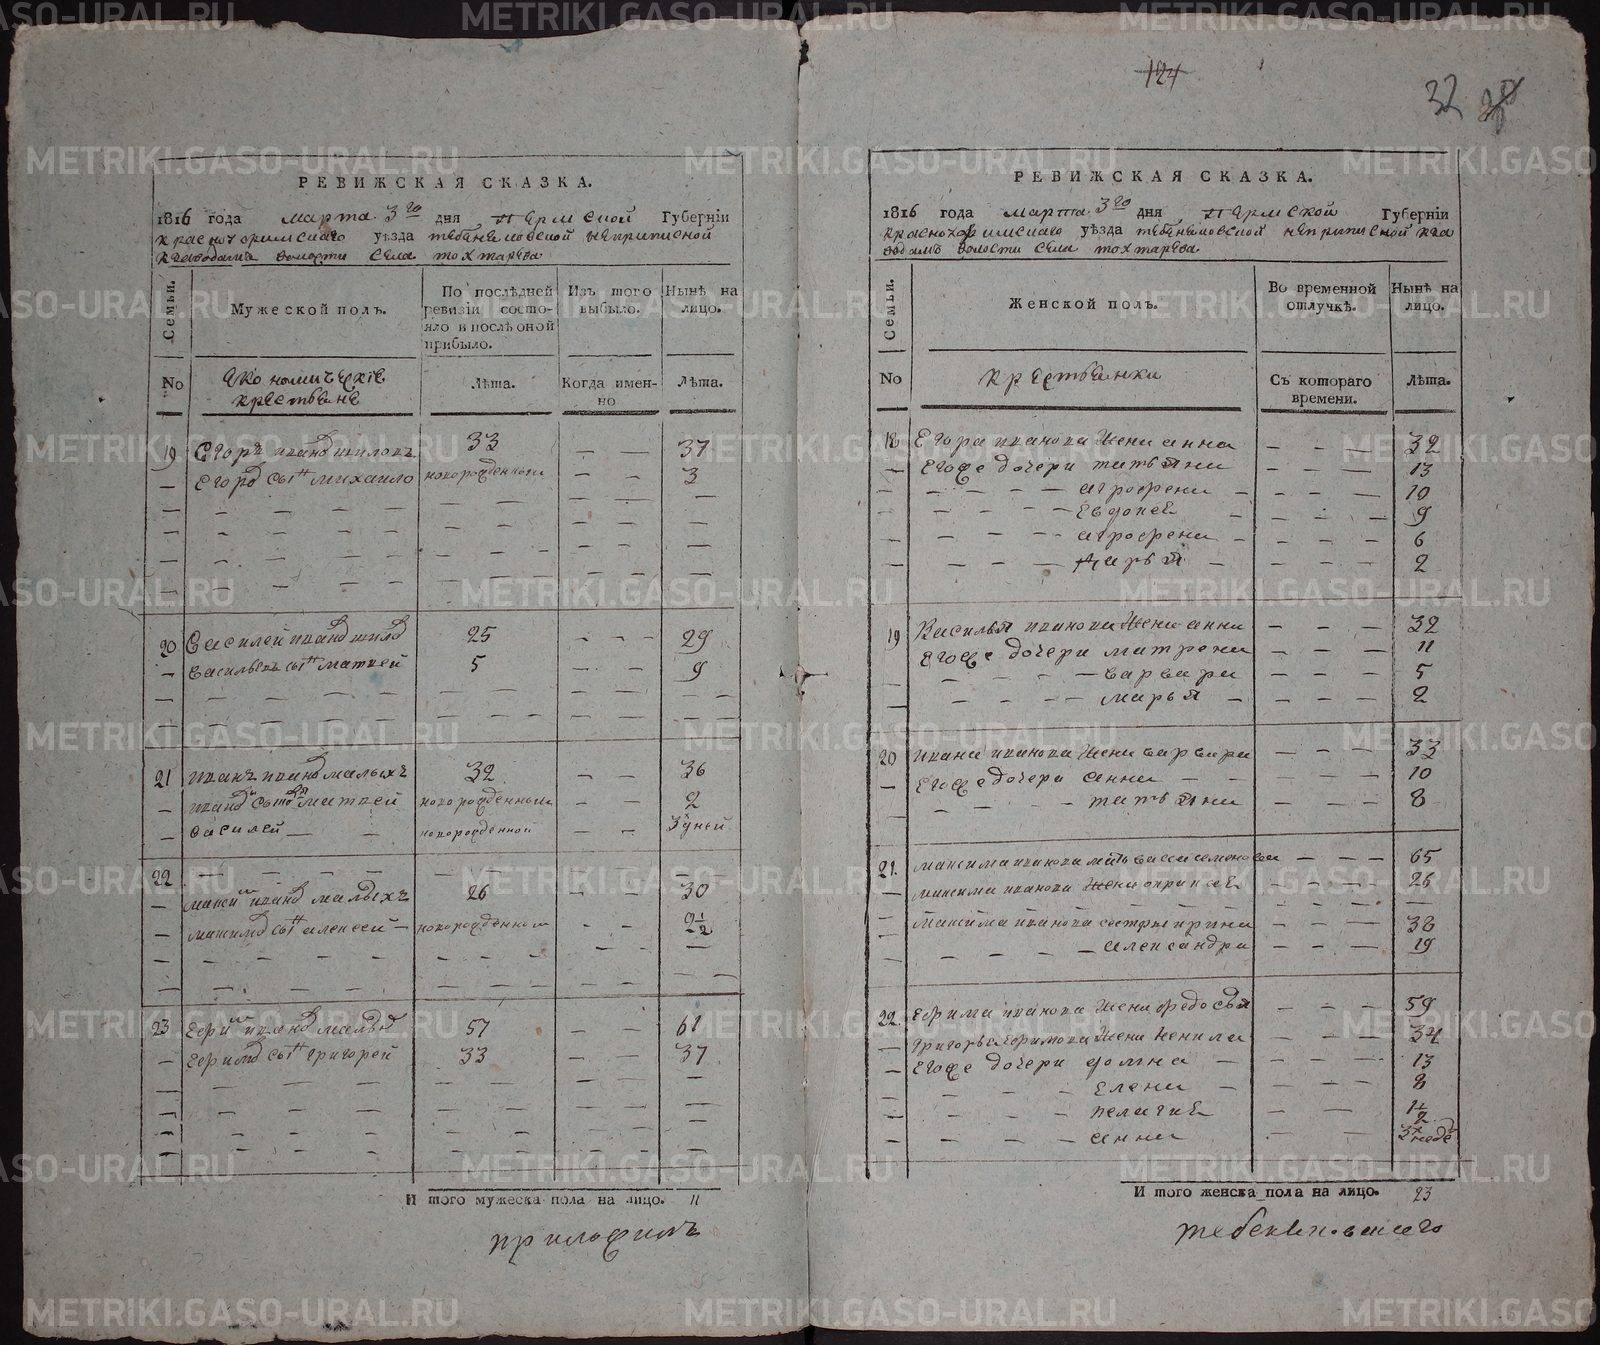 124
32
РЕВИЖСКАЯ СКАЗКА.
1816 года марта 3го дня пермской Губернїи
красноуфимскаго уѣзда тебеняковской неприписной
кзаводамъ волости села тохтарева
Семьи.
Мужеской полъ.
По послѣдней ревизїи состояло и послѣ оной прибыло.
Изъ того выбыло.
Нынѣ на лицо.
No
Економическїе крестьяне
Лѣта.
Когда именно
Лѣта.
19 Егоръ иванов шиловъ 33 — — 37
— Егоров сынъ михаило новорожденныи — — 3
20 Василей иванов шилов 25 — — 29
— васильевъ сынъ матвей 5 — — 9
21 иванъ иванов малыхъ 32 — — 36
— иванов сынов матвей новорожденныи — — 2
— василей — — новорожденной — — 3 дней
22 — — — — —
— максим иванов малыхъ 26 — — 30
— максимов сынъ алексей — новорожденной — — 1/2
23 ефим иванов малых 57 — — 61
— ефимов сынъ григорей 33 — — 37
И того мужеска пола на лицо. 11
РЕВИЖСКАЯ СКАЗКА.
1816 года марта 3го дня пермской Губернїи
красноуфимскаго уѣзда тебеняковской неприписной кза
водамъ волости села тохтарева
Семьи.
Женской полъ.
Во временной отлучкѣ.
Нынѣ на лицо.
No
крестьянки
Съ котораго времени.
Лѣта.
18 Егора иванова жена анна — — — 32
— Егоже дочери татьяна — — — 13
— — — — агрофена — — — — 10
— — — — Евдокея — — — — 9
— — — — агрофена — — — — 6
— — — — дарья — — — — 2
19 Василья иванова жена анна — — — 32
Егоже дочери матрена — — — 11
— — — — варвара — — — 5
— — — — марья — — — — 2
20 ивана иванова жена варвара — — — 33
— Егоже дочери анна — — — — — 10
— — — — татьяна — — — 8
21. максима иванова мать васса семенова — — — 65
— максима иванова жена окринея — — — 26
— максима иванова сестры ирина — — — 38
— — — — александра — — — 19
22. Ефима иванова жена федосья — — — 59
— григорья ефимова жена ненила — — — 34
— Егоже дочери домна — — — — 13
— — — — елена — — — — 8
— — — — пелагия — — 1 1/2
— — — — анна — — 3х неде
И того женска пола на лицо. 23
тебеняковскаго